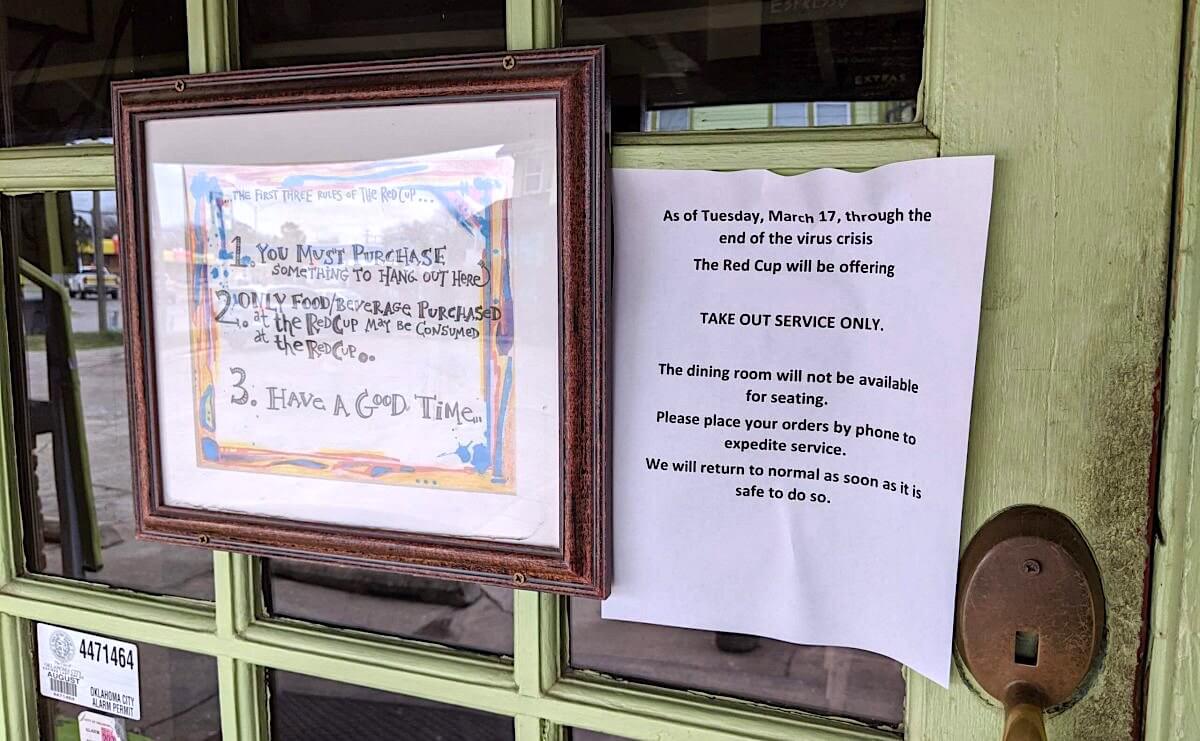 ESPRESSO
EXTRAS
...THE FIRST THREE RULES OF THE RED CUP...
1. YOU MUST PURCHASE
SOMETHING TO HANG OUT HERE
2. ONLY FOOD/BEVERAGE PURCHASED
at the RED CUP MAY BE CONSUMED
at the RED CUP..
3. HAVE A GOOD TIME...
As of Tuesday, March 17, through the
end of the virus crisis
The Red Cup will be offering
TAKE OUT SERVICE ONLY.
The dining room will not be available
for seating.
Please place your orders by phone to
expedite service.
We will return to normal as soon as it is
safe to do so.
4471464
AUGUST
OKLAHOMA CITY
ALARM PERMIT